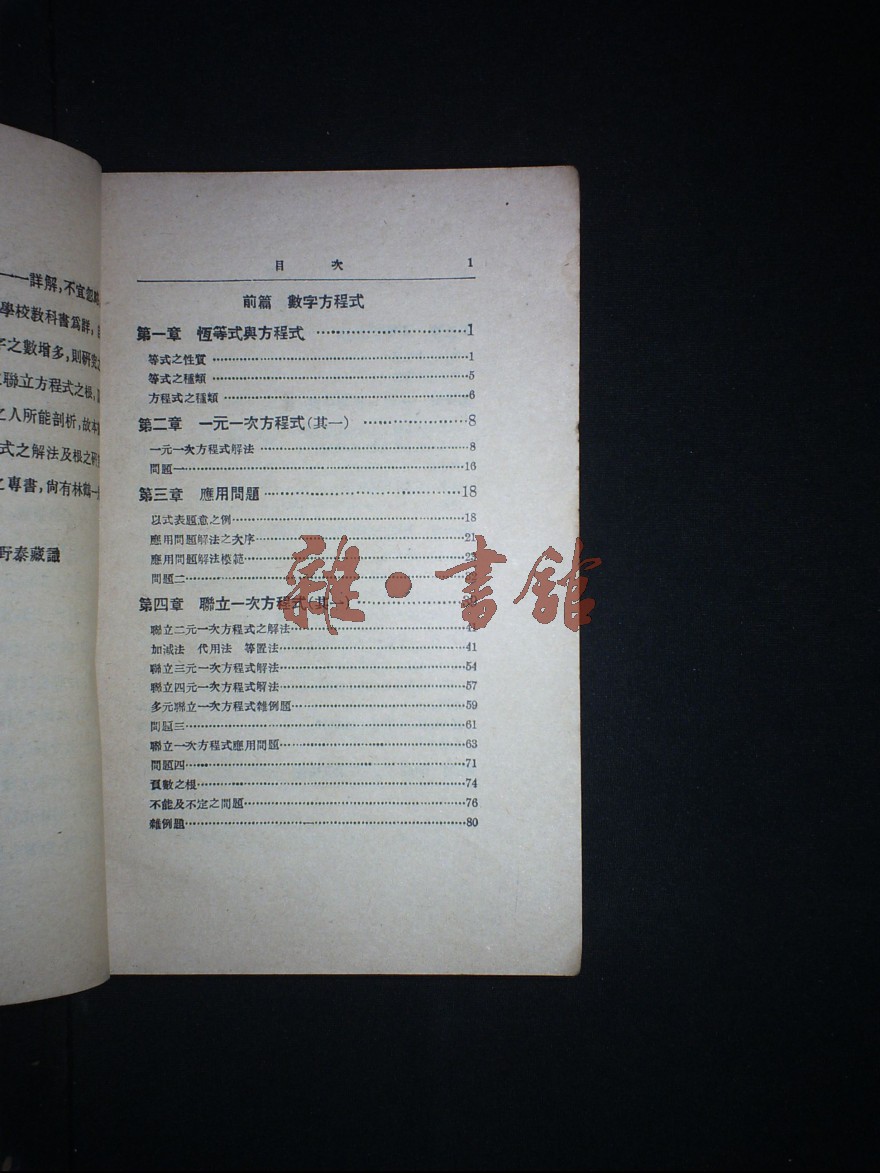 一一詳解,不宜忽
學校教科書爲群,
字之數增多,則研究
聯立方程式之根,
之人所能剖析,故本
式之解法及根之研
之專書,尙有林鶴一
野泰藏識
目 次 1
前篇 數字方程式
第一章 恆等式與方程式…………………………1
等式之性質…………………………1
等式之種類…………………………5
方程式之種類…………………………6
第二章 一元一次方程式(其一)…………………8
一元一次方程式解法…………………………8
問題一…………………………16
第三章 應用問題…………………………18
以式表題意之例…………………………18
應用問題解法之次序…………………………21
應用問題解法模範…………………………23
問題二…………………………
第四章 聯立一次方程式(其一)…………………
聯立二元一次方程式之解法…………………………41
加減法 代用法 等置法…………………………41
聯立三元一次方程式解法…………………………54
聯立四元一次方程式解法…………………………57
多元聯立一次方程式雜例題…………………………59
問題三…………………………61
聯立一次方程式應用問題…………………………63
問題四…………………………71
負數之根…………………………74
不能及不定之問題…………………………76
雜例題…………………………80
雜·書舘